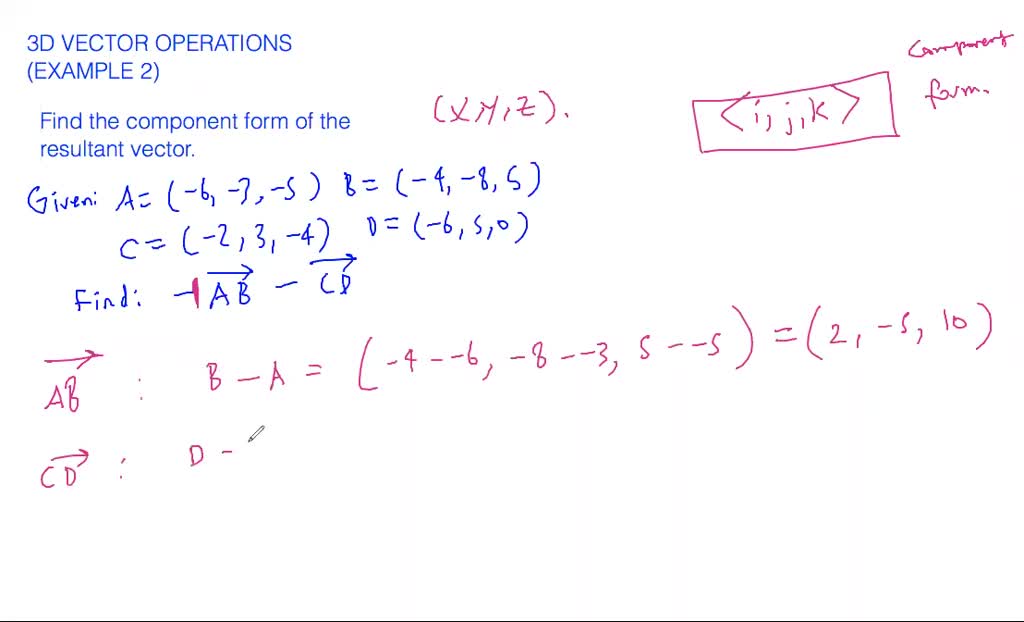 3D VECTOR OPERATIONS
(EXAMPLE 2)
Component
form.
(x,y,z).
<i,j,k>
Find the component form of the
resultant vector.
Given: A=(-6,-3,-5) B=(-4,-8,5)
C=(-2,3,-4) D=(-6,5,0)
Find: -1AB - CD
AB : B-A = (-4--6, -8--3, 5--5) = (2,-5,10)
CD : D -